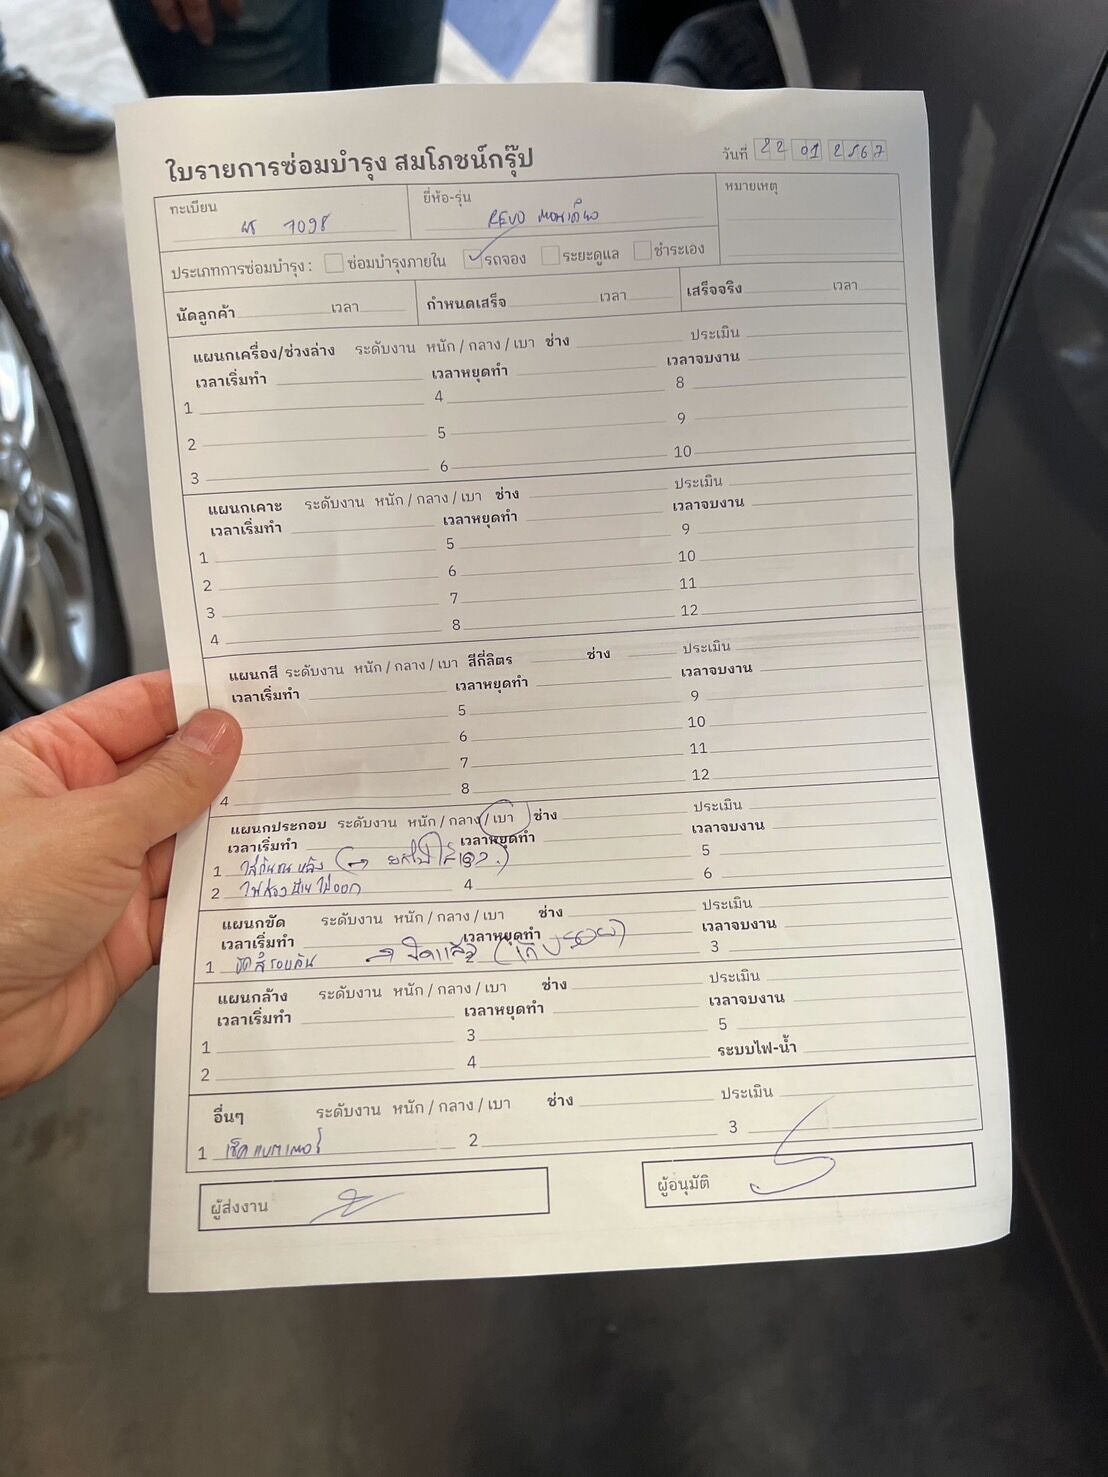 ใบรายการซ่อมบำรุง สมโภชน์กรุ๊ป
วันที่ 22 01 2567
ทะเบียน 7098
ยี่ห้อ-รุ่น REVO ตอนเดียว
หมายเหตุ
ประเภทการซ่อมบำรุง : ซ่อมบำรุงภายใน รถจอง ระยะดูแล ชำระเอง
นัดลูกค้า เวลา กำหนดเสร็จ เวลา เสร็จจริง เวลา
แผนกเครื่อง/ช่วงล่าง ระดับงาน หนัก / กลาง / เบา ช่าง ประเมิน
เวลาเริ่มทำ เวลาหยุดทำ เวลาจบงาน
1 4 8
2 5 9
3 6 10
แผนกเคาะ ระดับงาน หนัก / กลาง / เบา ช่าง ประเมิน
เวลาเริ่มทำ เวลาหยุดทำ เวลาจบงาน
1 5 9
2 6 10
3 7 11
4 8 12
แผนกสี ระดับงาน หนัก / กลาง / เบา สีกี่ลิตร ช่าง ประเมิน
เวลาเริ่มทำ เวลาหยุดทำ เวลาจบงาน
5 9
6 10
7 11
4 8 12
แผนกประกอบ ระดับงาน หนัก / กลาง / เบา ช่าง ประเมิน
เวลาเริ่มทำ เวลาหยุดทำ เวลาจบงาน
1 ใส่กันชนหลัง 5
2 ไฟส่องป้ายไม่ออก 4 6
แผนกขัด ระดับงาน หนัก / กลาง / เบา ช่าง ประเมิน
เวลาเริ่มทำ เวลาหยุดทำ เวลาจบงาน
1 ขัดสีรอบคัน → ขัดแล้ว (เก็บรอย) 2 3
แผนกล้าง ระดับงาน หนัก / กลาง / เบา ช่าง ประเมิน
เวลาเริ่มทำ เวลาหยุดทำ เวลาจบงาน
1 3 5
2 4 ระบบไฟ-น้ำ
อื่นๆ ระดับงาน หนัก / กลาง / เบา ช่าง ประเมิน
1 เช็คแบตเตอรี่ 2 3
ผู้ส่งงาน
ผู้อนุมัติ